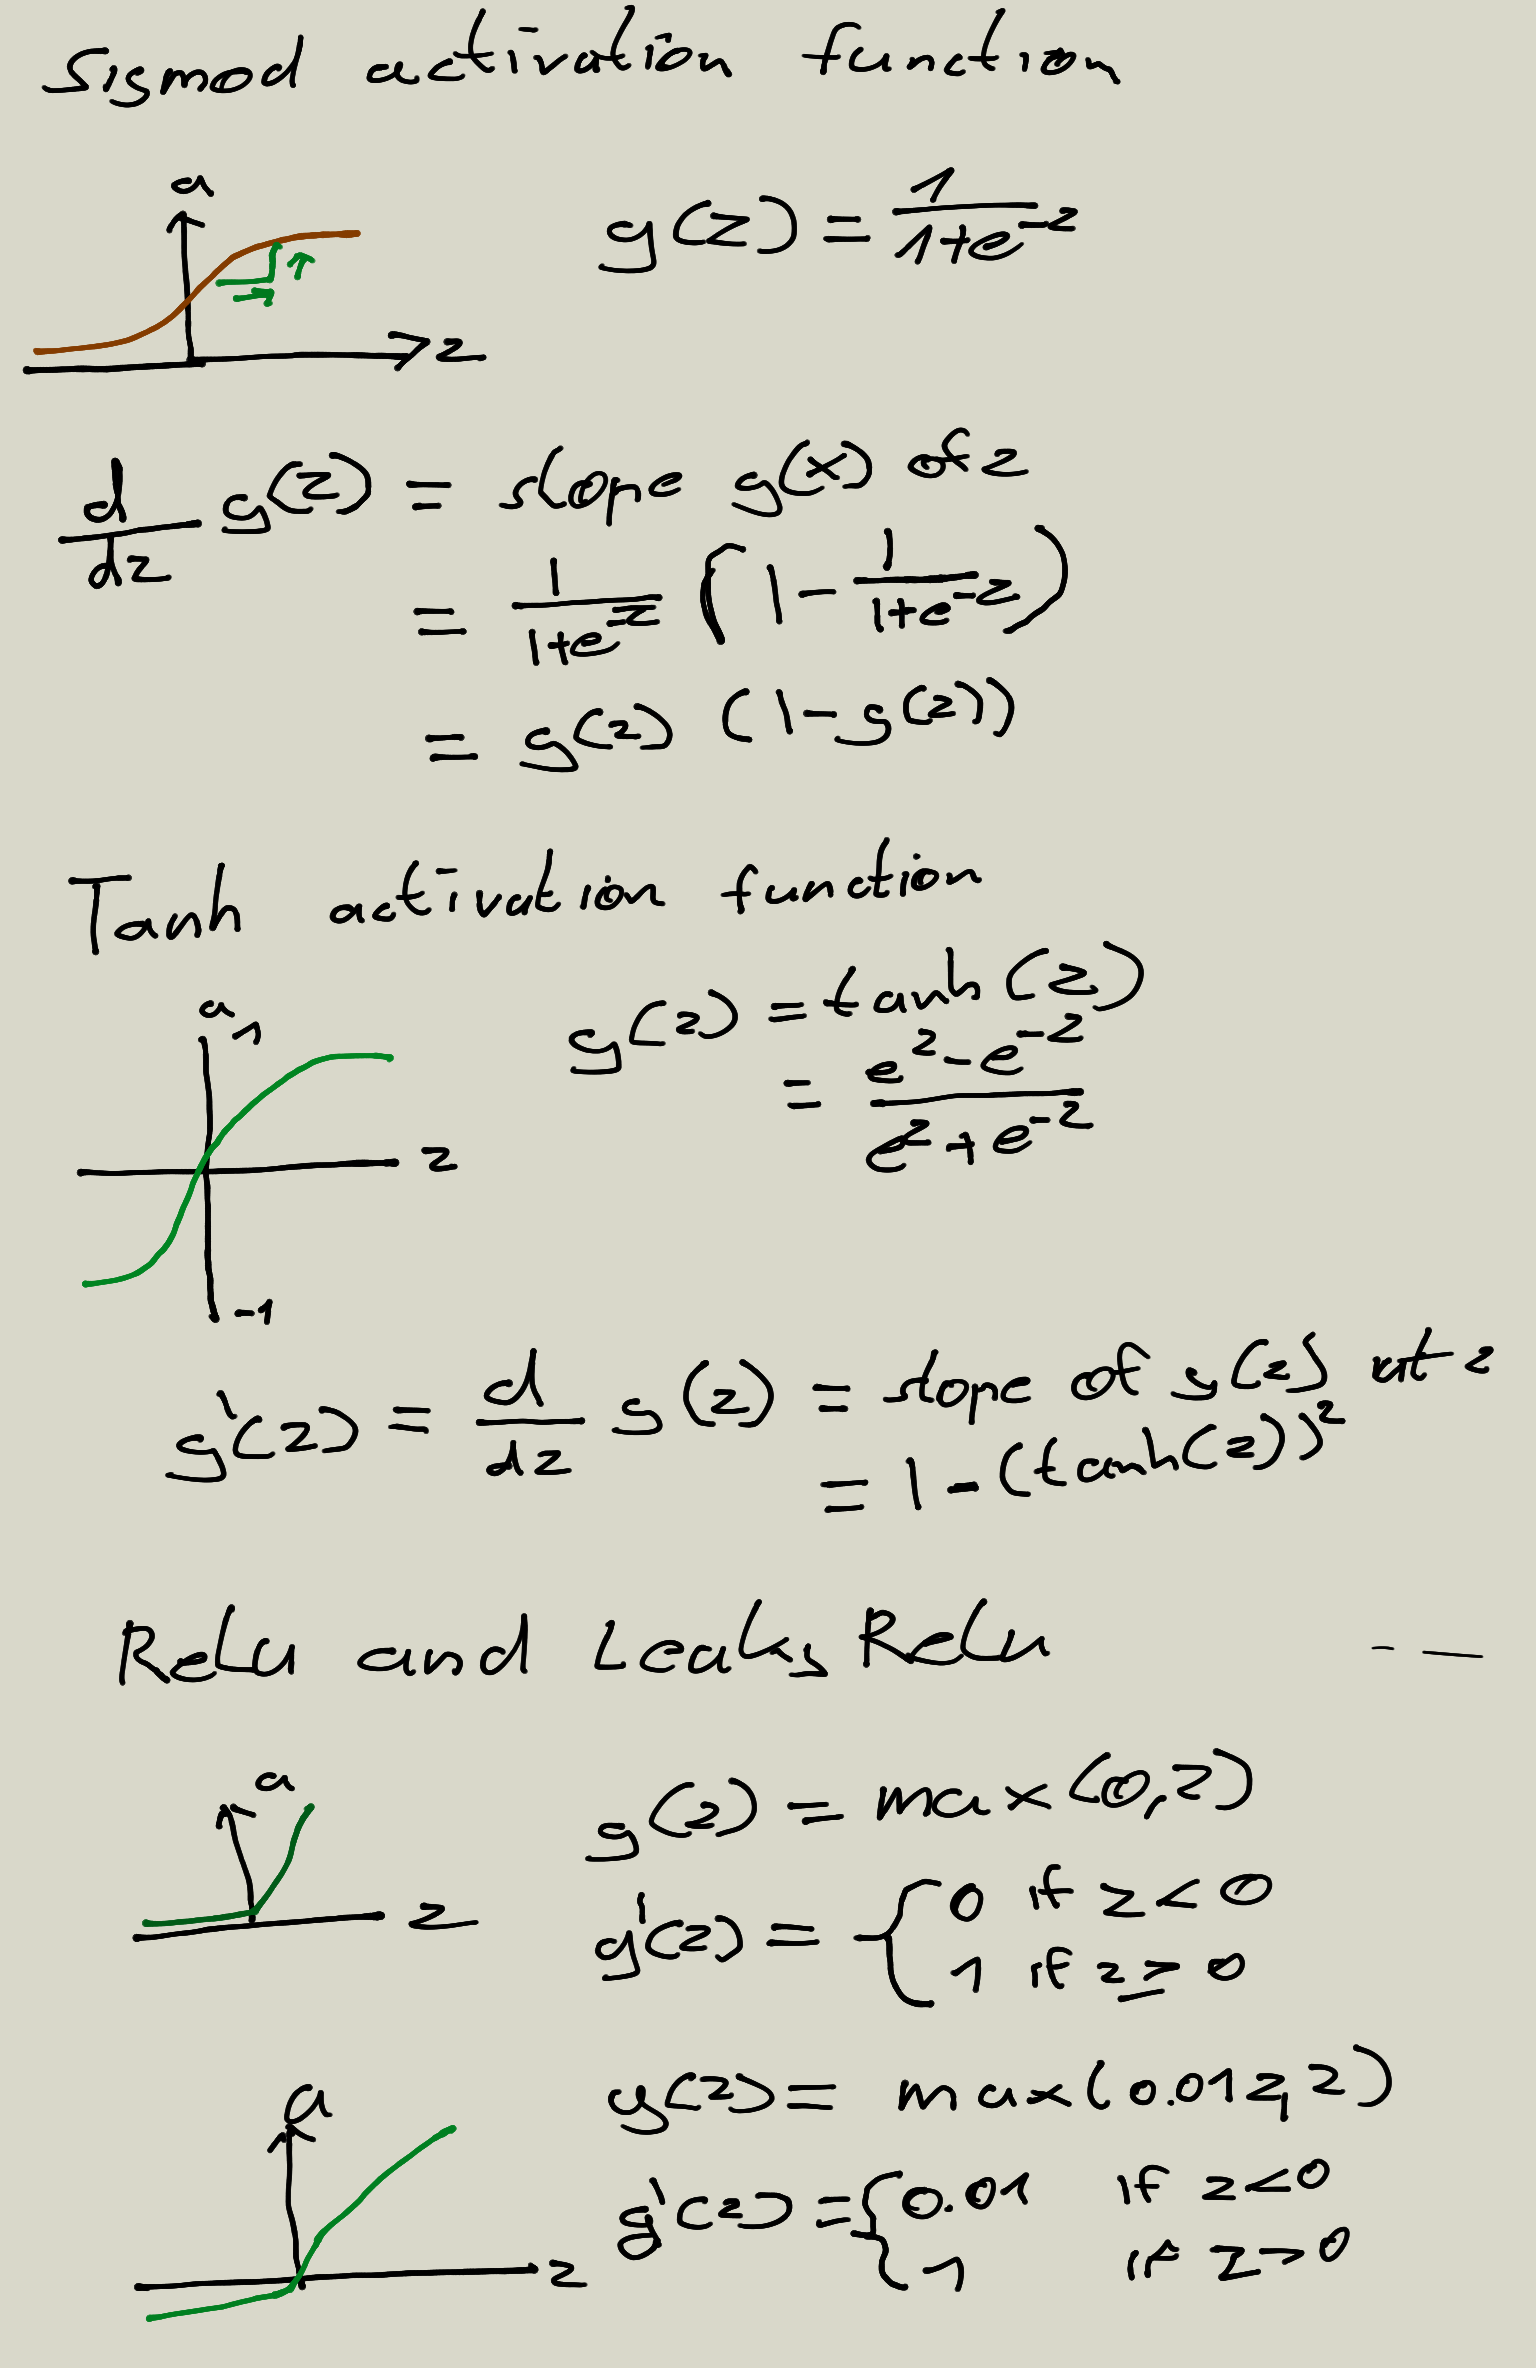 Sigmod activation function
a
g(z) = 1/(1+e^-z)
z
d/dz g(z) = slope g(x) of z
= 1/(1+e^-z) (1 - 1/(1+e^-z))
= g(z) (1-g(z))
Tanh activation function
a
1
g(z) = tanh(z)
= (e^z - e^-z)/(e^z + e^-z)
z
-1
g'(z) = d/dz g(z) = slope of g(z) at z
= 1 - (tanh(z))^2
ReLu and Leaky ReLu
a
g(z) = max(0,z)
z
g'(z) = { 0 if z < 0
1 if z ≥ 0
a
g(z) = max(0.01z, z)
g'(z) = { 0.01 if z<0
1 if z>0
z